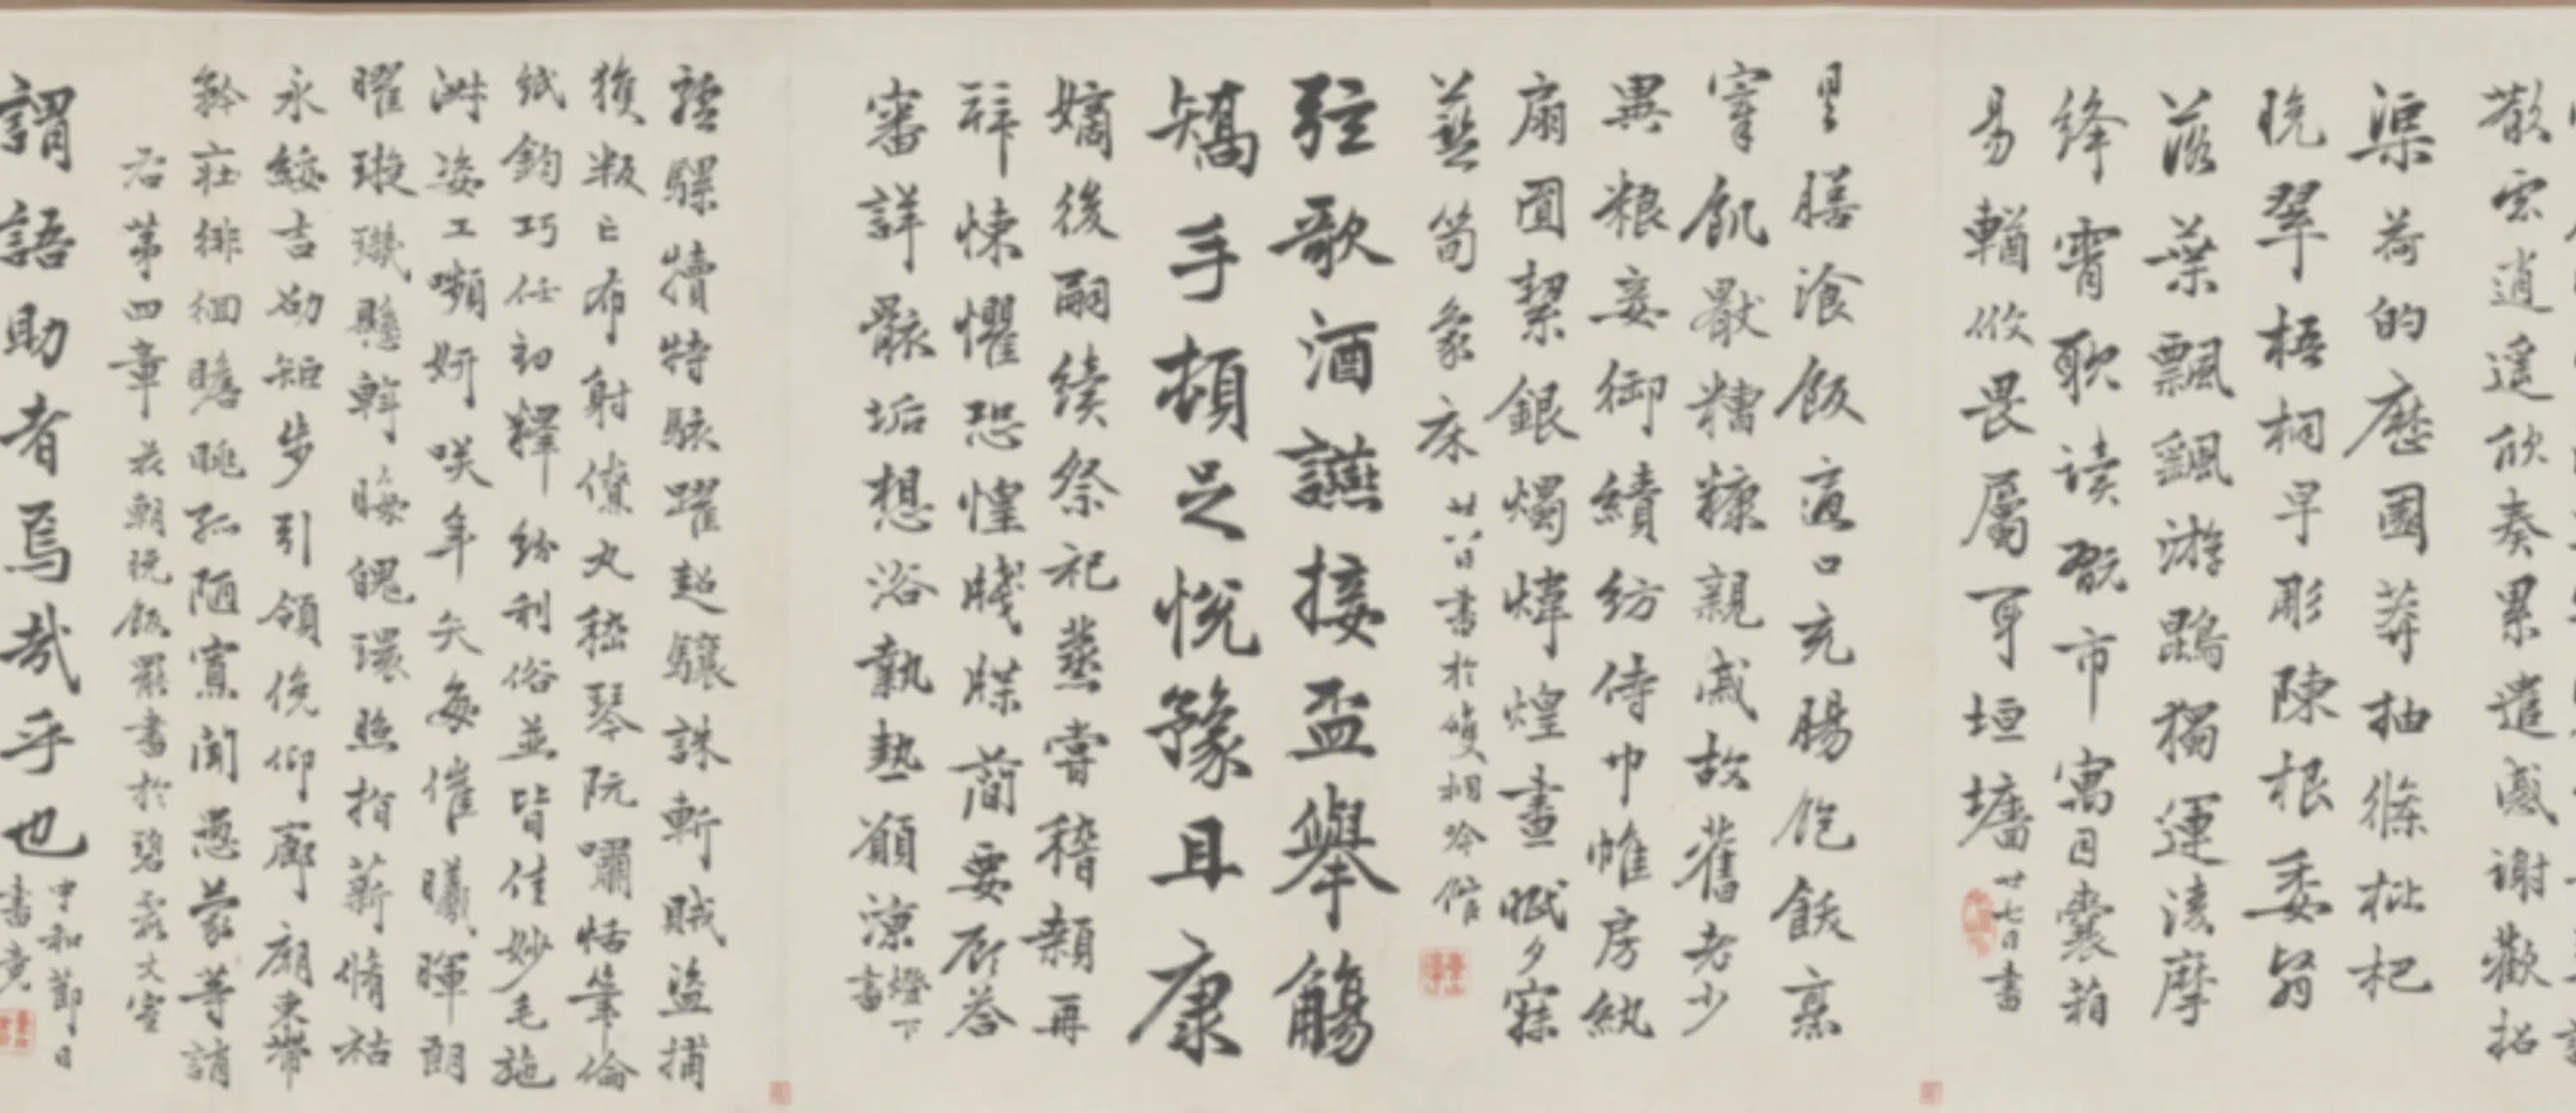 散慮逍遙欣奏累遣慼謝歡招
渠荷的歷園莽抽條枇杷
晚翠梧桐早彫陳根委翳
落葉飄颻游鵾獨運凌摩
絳霄耽读翫市寓目囊箱
易輶攸畏屬耳垣墻
廿七日書
具膳飡飯適口充腸飽飫烹
宰飢厭糟糠親戚故舊老少
異粮妾御績紡侍巾帷房紈
扇圓絜銀燭煒煌晝眠夕寐
藍筍象床
廿八日書於雙桐吟館
弦歌酒讌接盃舉觴
矯手頓足悅豫且康
嫡後嗣續祭祀蒸嘗稽顙再
拜悚懼恐惶牋牒簡要顧答
審詳骸垢想浴執熱願涼
燈下
書
驢騾犢特駭躍超驤誅斬賊盜捕
獲叛亡布射僚丸嵇琴阮嘯恬筆倫
紙鈞巧任初釋紛利俗並皆佳妙毛施
淑姿工嚬妍咲年矢每催曦暉朗
曜璇璣懸斡晦魄環照指薪脩祜
永綏吉劭矩步引領俛仰廊廟束帶
矜莊徘徊瞻眺孤陋寡聞愚蒙等誚
右第四章花朝晚飯罷書於碧
謂語助者焉哉乎也
中和節日
書竟